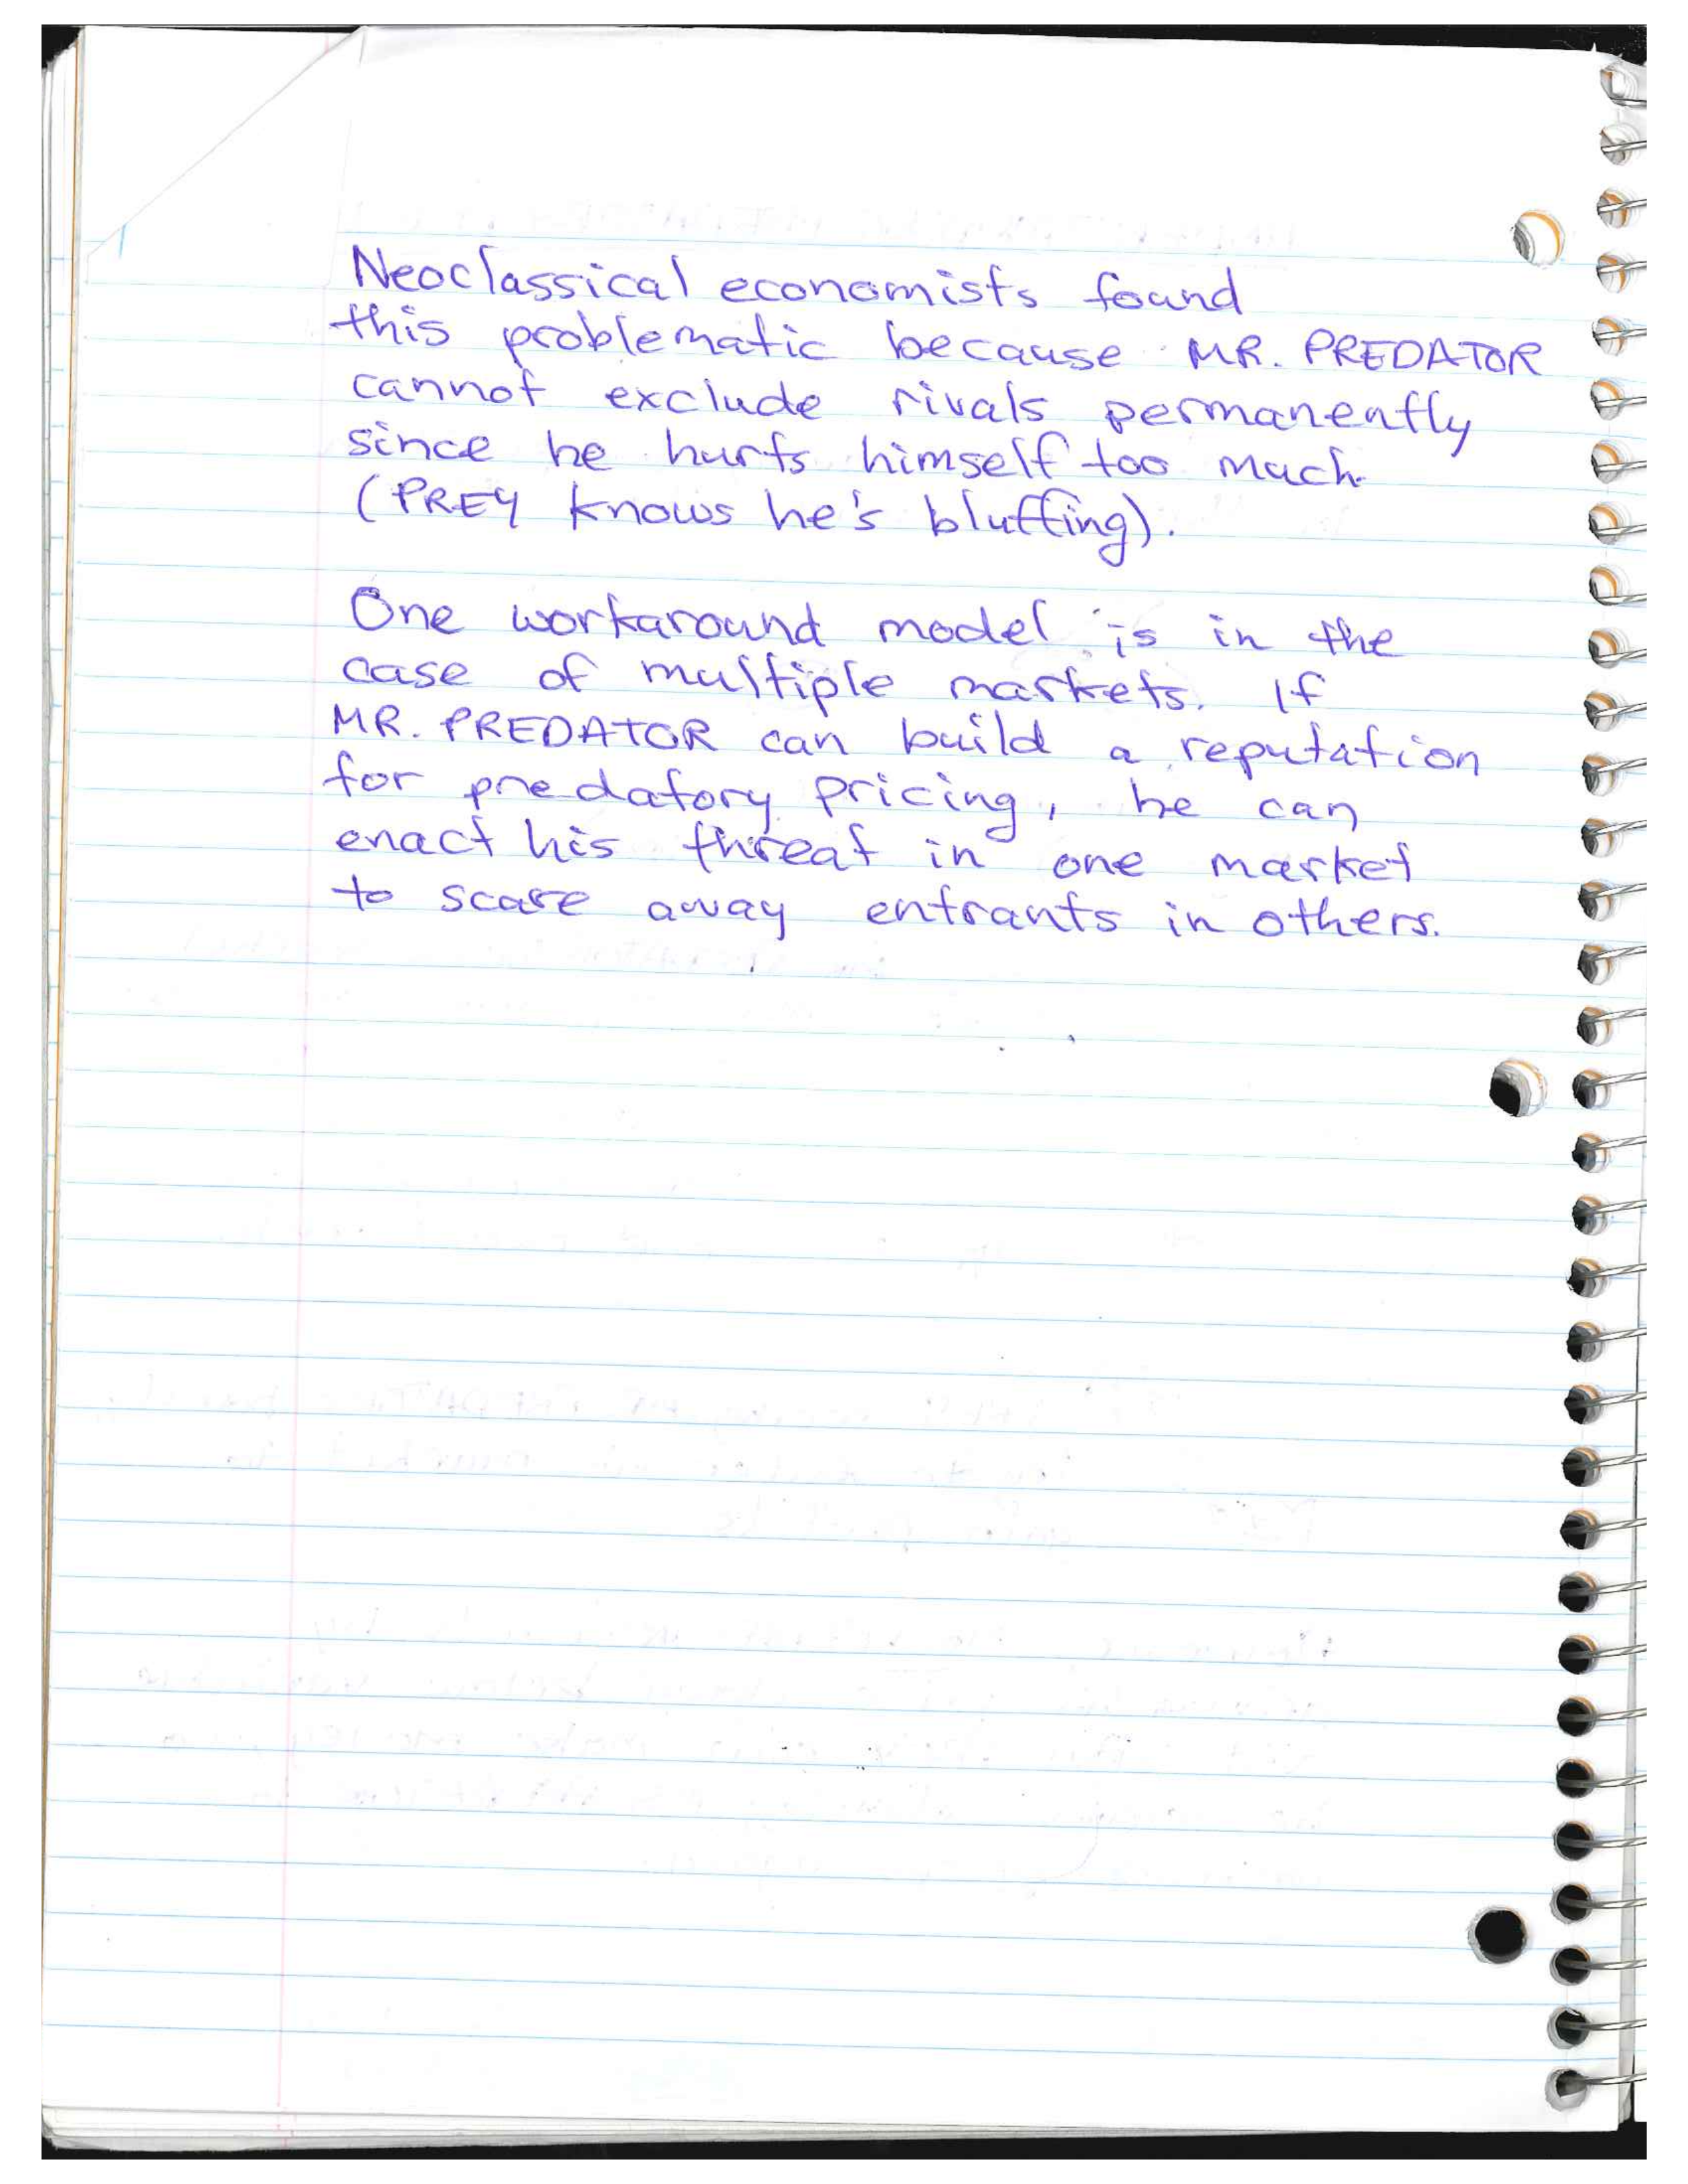 Neoclassical economists found
this problematic because MR. PREDATOR
cannot exclude rivals permanently
since he hurts himself too much
(PREY knows he's bluffing).
One workaround model is in the
case of multiple markets. If
MR. PREDATOR can build a reputation
for predatory pricing, he can
enact his threat in one market
to scare away entrants in others.